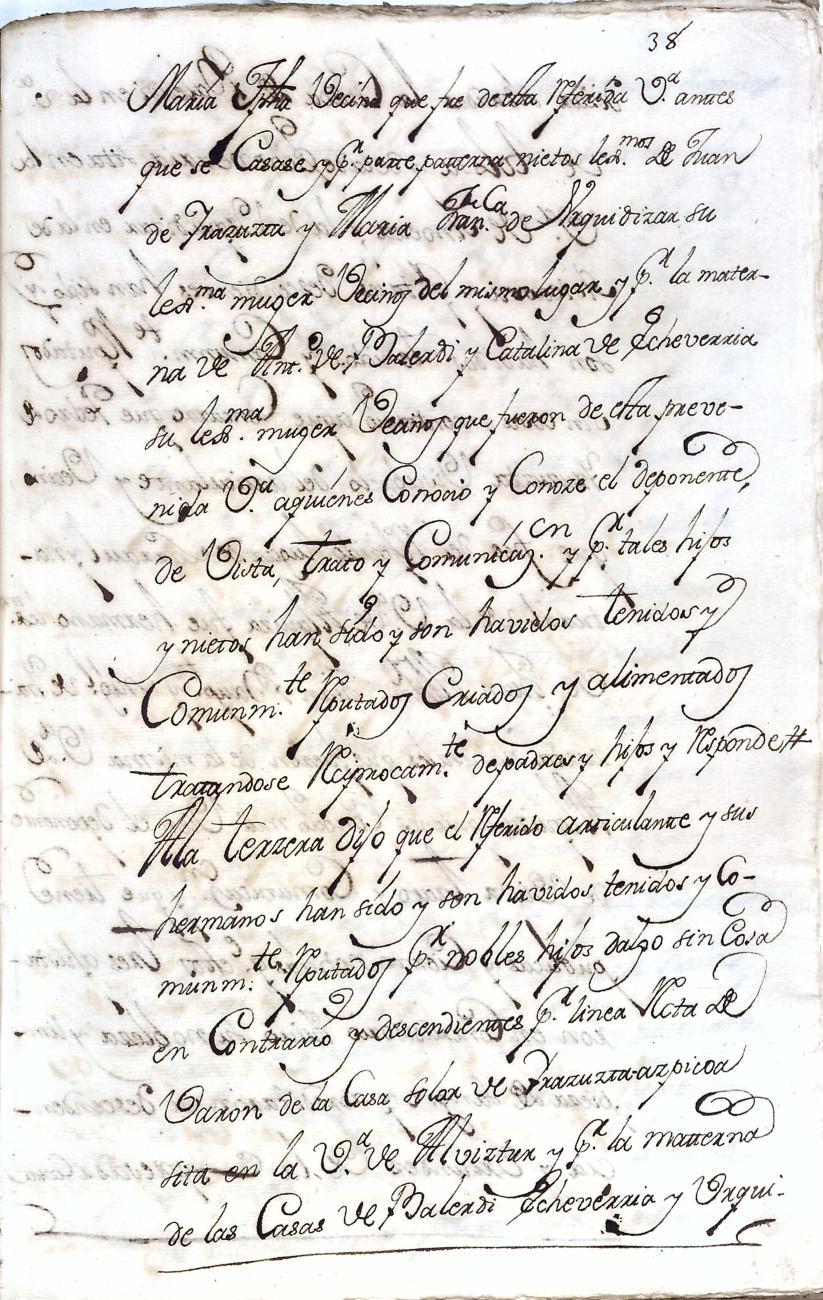 38
Maria Jpha Vecina que fue de esta Referida V.ª antes
que se Casase y p.r parte paterna nietos lex.mos de Juan
de Irazuzta y Maria Fran.ca de Urquidizar su
lex.ma muger Vecinos del mismo lugar, y p.r la mater-
na de Ant.º de Balerdi y Catalina de Echeverria
su lex.ma muger Vecinos que fueron de esta preve-
nida V.ª aquiénes Conocio y Conoze el deponente,
de Vista, trato y Comunicaz.on y p.r tales hijos
y nietos han sido y son havidos tenidos y
Comunm.te Reputados Criados y alimentados
tratandose Reciprocam.te de padres y hijos y Responde #
A la terzera dijo que el Referido articulante y sus
hermanos han sido y son havidos, tenidos y Co-
munm.te Reputados p.r nobles hijos dalgo sin Cosa
en Contrario y descendientes p.r linea Recta de
Varon de la Casa solar de Irazuzta-azpicoa
sita en la V.ª de Alviztur y p.r la materna
de las Casas de Balerdi Echeverria y Urqui-